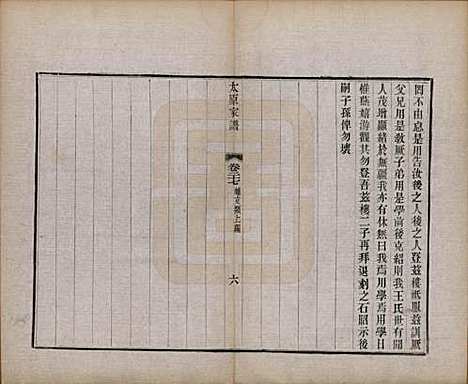 罔不由忌是用告汝後之人後之人登茲樓祇服茲訓厥
父兄用是教厥子弟用是學前後克紹則我王氏世有聞
人茂增顯績於無疆我亦有休無曰我焉用學焉用學日
惟燕嬉游觀以勿登吾茲樓二子再拜退刻之石昭示後
嗣子孫俾勿壞
太原家譜
卷二十七
六